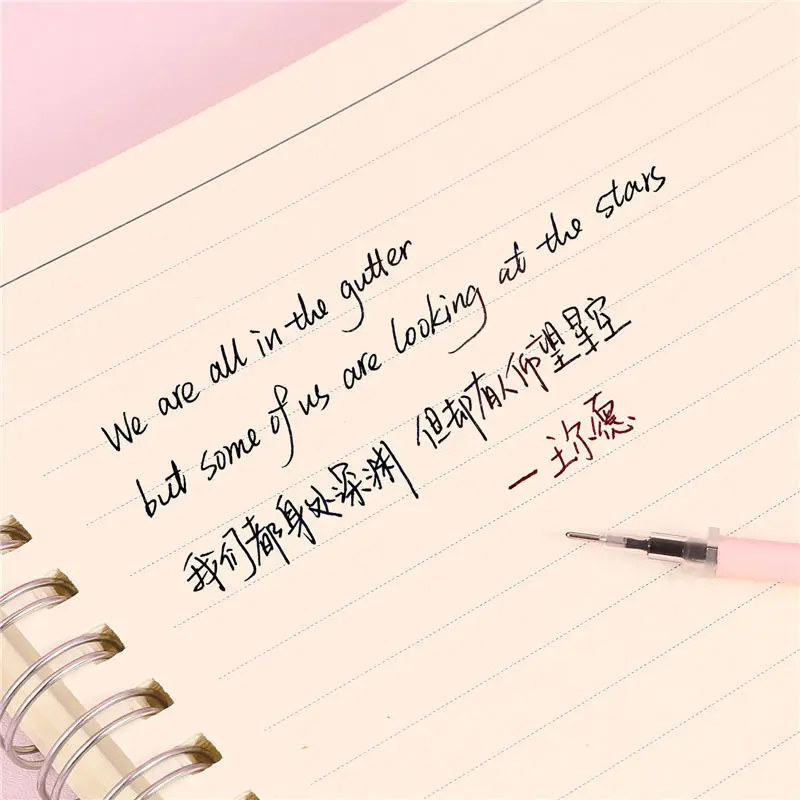 We are all in the gutter
but some of us are looking at the stars
我们都身处深渊 但却有人仰望星空
一王尔德